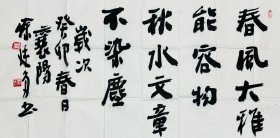 春风大雅
能容物
秋水文章
不染尘
岁次
癸卯春日
襄阳